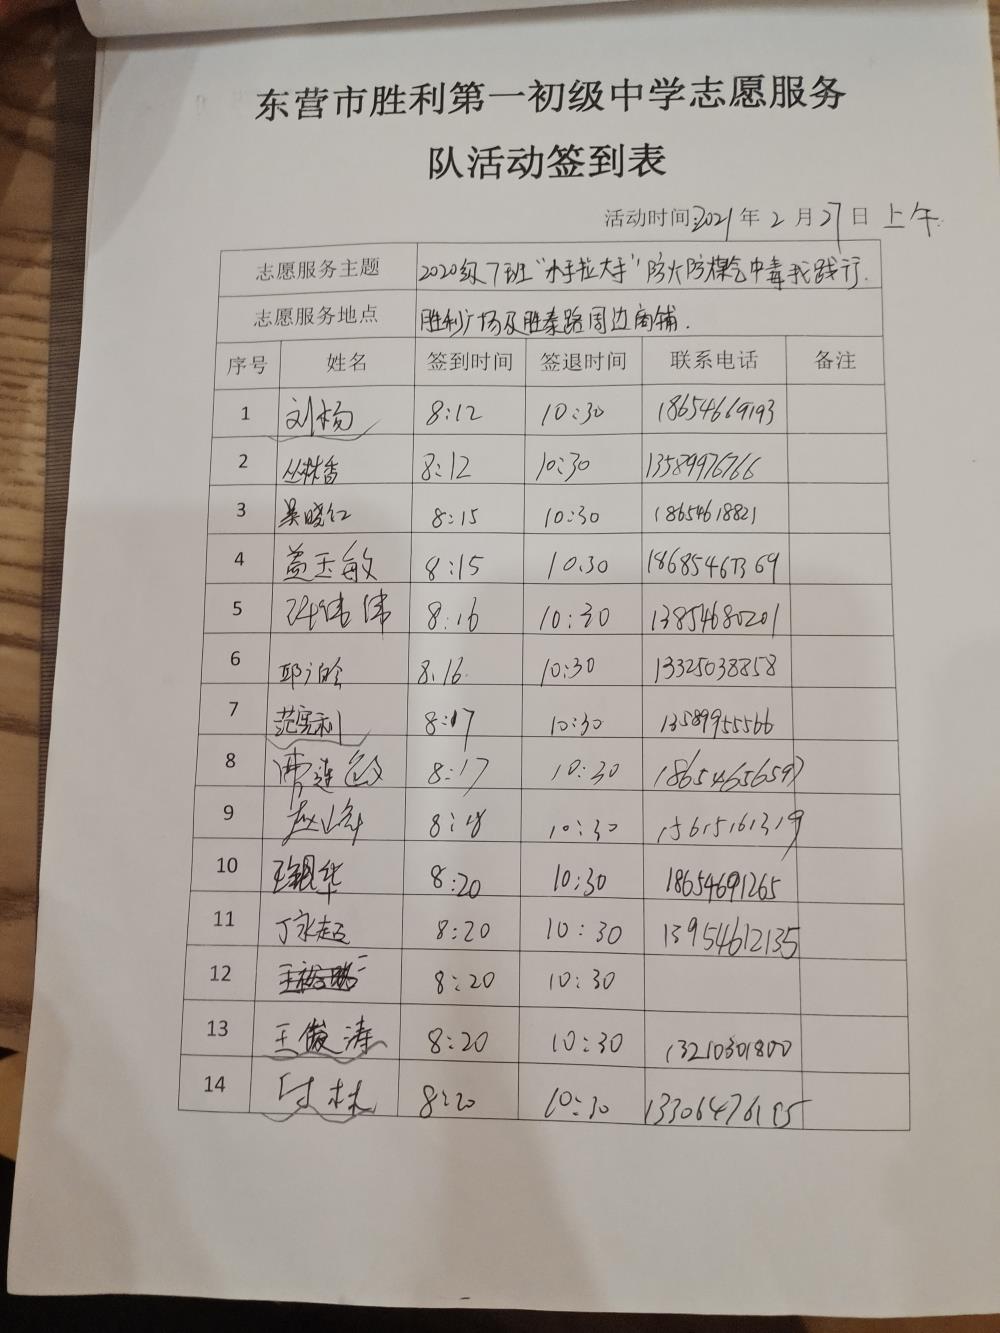 东营市胜利第一初级中学志愿服务
队活动签到表
活动时间:2021年2月27日 上午
志愿服务主题 2020级7班“小手拉大手”防火防煤气中毒我践行.
志愿服务地点 胜利广场及胜泰路周边商铺.
序号 姓名 签到时间 签退时间 联系电话 备注
1 刘杨 8:12 10:30 18654669193
2 丛林香 8:12 10:30 13589976766
3 吴晓红 8:15 10:30 18654618821
4 盖玉敏 8:15 10.30
5 伟伟 8:16 10:30 13854680201
6 8.16. 10:30 13325038858
7 范宪利 8:17 10:30 13589955566
8 8:17 10:30 18654656597
9 赵峰 8:18 10:30 15615161319
10 王银华 8:20 10:30 18654691265
11 丁永超 8:20 10:30 13954612135
12 8:20 10:30
13 王俊涛 8:20 10:30 13210301800
14 付林 8:20 10:30